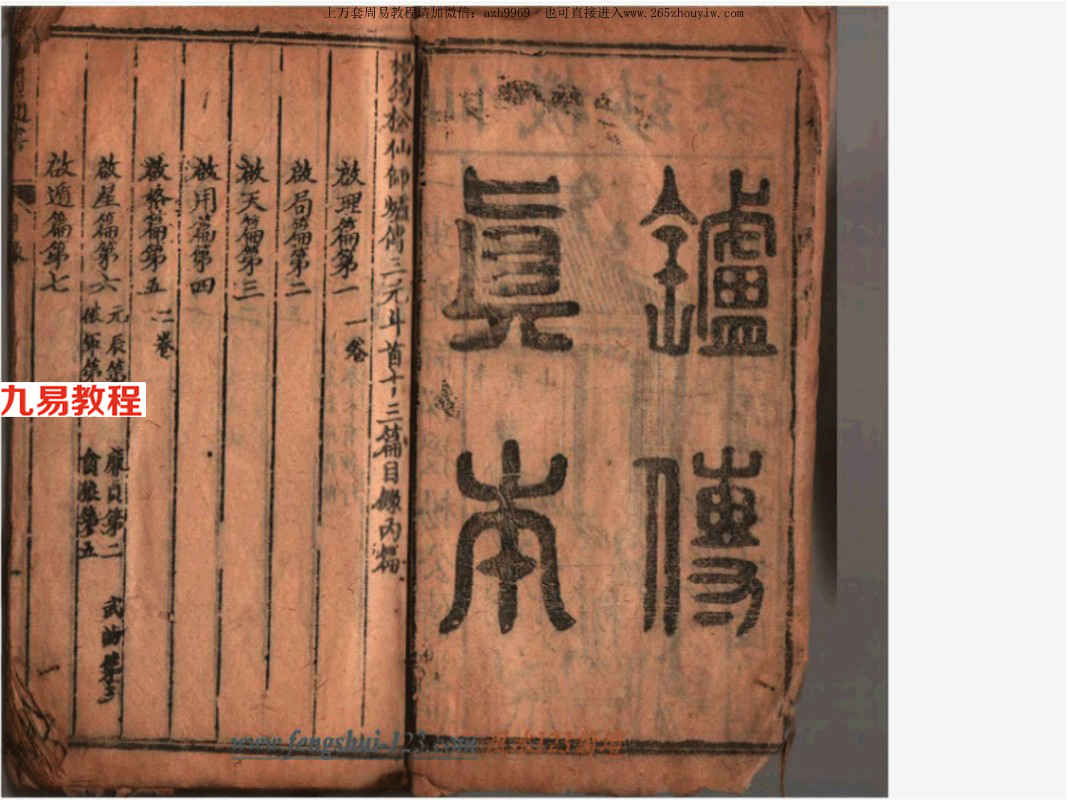 上万套周易教程请加微信：azh9969 也可直接进入www.265zhouyiw.com
鑪傳
真本
楊筠松仙師爐傳三元斗首十三篇目錄內篇
啟理篇第一 一卷
啟局篇第二
啟天篇第三
啟用篇第四
啟格篇第五 二卷
啟星篇第六 元辰第 廉貞第二 武曲第三
貪狼第五
啟遁篇第七
九易教程
www.fengshui-123.com